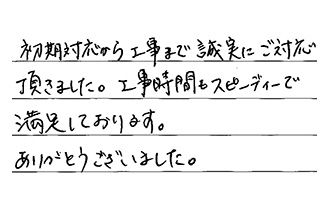 初期対応から工事まで誠実にご対応
頂きました。工事時間もスピーディーで
満足しております。
ありがとうございました。